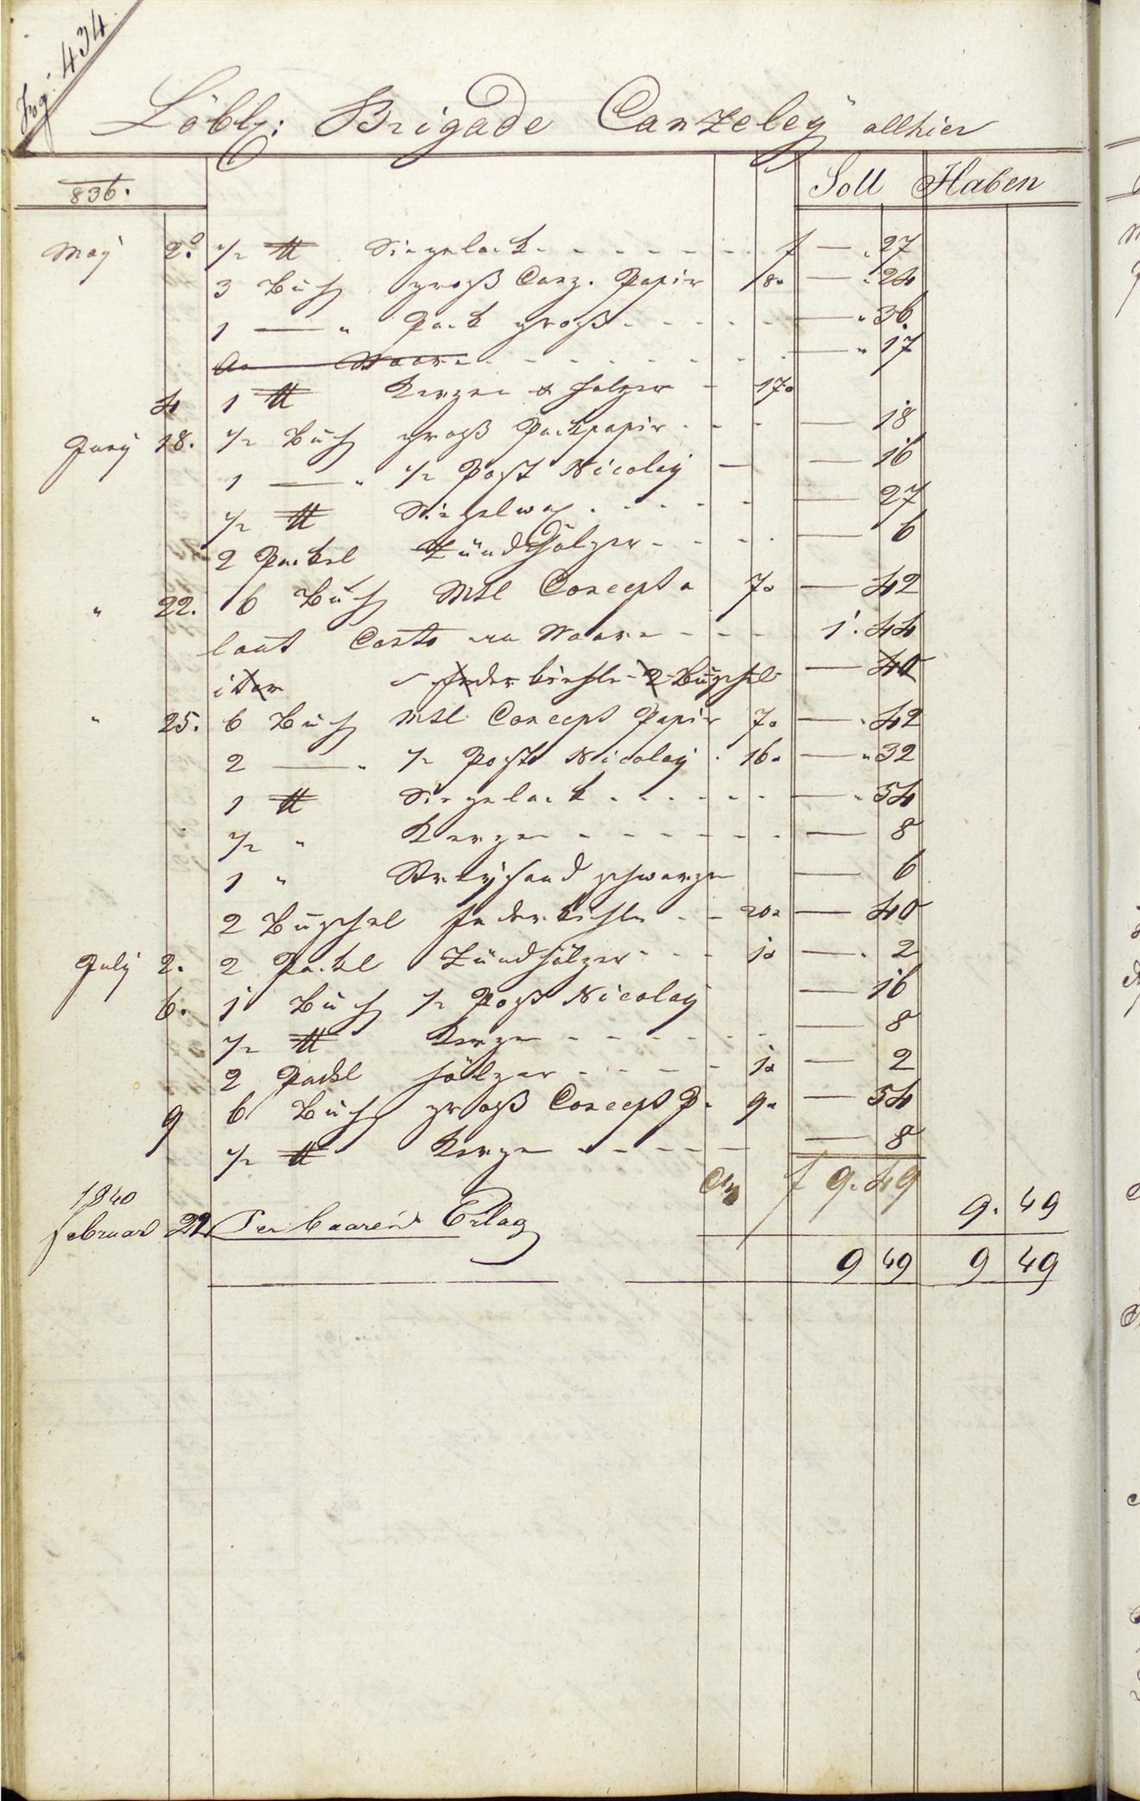 Fog: 434.
Löbl: Brigade Canzeley allhier
836. Soll Haben
May 2. ½ ℔ Siegelack f — . 27
3 Buch groß Conz. Papir 8. — . 24
1 — " Pack groß — " 36.
An Waare — " 17
4 1 ℔ Kerzen & holzer 17.
Juny 18. ½ Buch groß Packpapir — 18
1 — " ½ Post Nicolay — 16
½ ℔ Siegelwax — 27
2 Packel Zündhölzer — 6
" 22. 6 Buch Mtl Concept a 7. — 42
laut Conto an Waare 1. 44
itar Federkiehle 2 Büschel — 40
" 25. 6 Buch Mtl Concept Papir 7. — . 42
2 — " ½ Post Nicolay 16. — " 32
1 ℔ Siegelack — . 54
½ " Kerzen — 8
1 " Streysand schwarzen — 6
2 Büschel Federkiehle 20. — 40
July 2. 2 Packl Zündhölzer 1. — . 2
6. 1 Buch ½ Post Nicolay — 16
½ ℔ Kerzen — 8
2 Packl hölzer 1. — 2
9 6 Buch groß Concept P. 9. — 54
½ ℔ Kerzen — 8
CM f 9. 49
1840
februar 22. Per baaren Erlag 9. 49
9 49 9 49